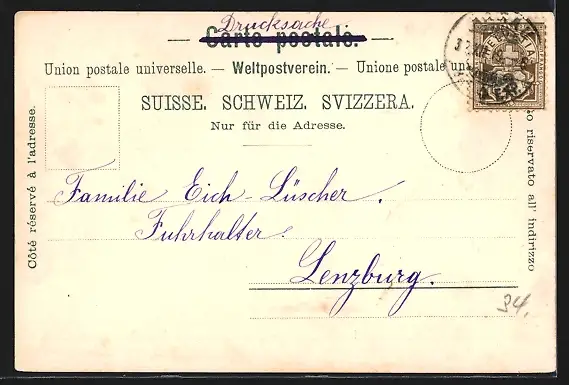 Drucksache
— Carte postale. —
Union postale universelle. — Weltpostverein. — Unione postale
SUISSE. SCHWEIZ. SVIZZERA.
Nur für die Adresse.
Côté réservé à l'adresse.
riservato all' indirizzo
Familie Eich-Lüscher.
Fuhrhalter.
Lenzburg.
34.